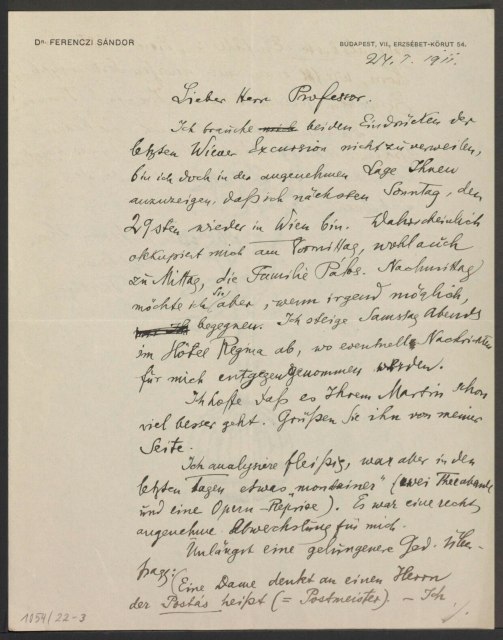 Dr. FERENCZI SÁNDOR
BUDAPEST, VII., ERZSÉBET-KÖRUT 54.
24. I. 1911.
Lieber Herr Professor.
Ich brauche bei den Eindrücken der
letzten Wiener Excursion nicht zu verweilen,
bin ich doch in der angenehmen Lage Ihnen
anzuzeigen, daß ich nächsten Sonntag, den
29sten wieder in Wien bin. Wahrscheinlich
okkupiert mich am Vormittag, wohl auch
zu Mittag, die Familie Pálos. Nachmittag
möchte ich Sie aber, wenn irgend möglich,
begegnen. Ich steige Samstag Abends
im Hôtel Regina ab, wo eventuelle Nachrichten
für mich entgegengenommen werden.
Ich hoffe daß es Ihrem Martin schon
viel besser geht. Grüßen Sie ihn von meiner
Seite.
Ich analysiere fleißig, war aber in den
letzten Tagen etwas „mondainer" (zwei Theaterabende
und eine Opern-Reprise). Es war eine recht
angenehme Abwechslung für mich.
Unlängst eine gelungene Ged.
(Eine Dame denkt an einen Herrn
der Postás heißt (= Postmeister). – Ich
1054/22-3